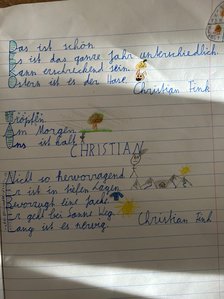 Das ist schön
Es ist das ganze Jahr unterschiedlich.
Kann erschreckend sein.
Ostern ist es der Hase.
Christian Fink
Tröpfeln
Am Morgen
Uns ist kalt
CHRISTIAN
Nicht so hervorragend
Er ist in tiefen Lagen
Bevorzugh eine Jacke.
Er geht bei Sonne Weg.
Lang ist es nervig.
Christian Fink